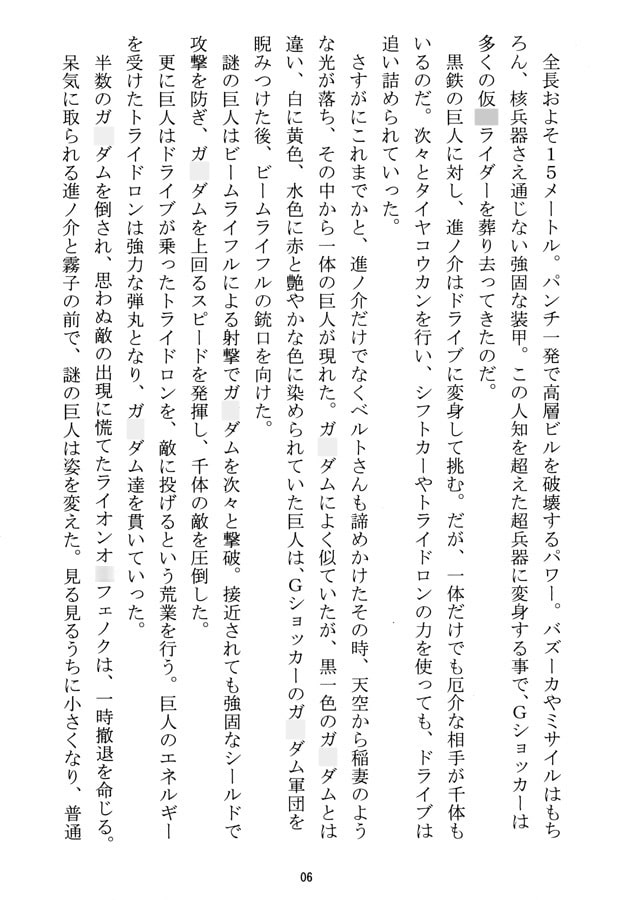 全長およそ１５メートル。パンチ一発で高層ビルを破壊するパワー。バズーカやミサイルはもち
ろん、核兵器さえ通じない強固な装甲。この人知を超えた超兵器に変身する事で、Ｇショッカーは
多くの仮 ライダーを葬り去ってきたのだ。
黒鉄の巨人に対し、進ノ介はドライブに変身して挑む。だが、一体だけでも厄介な相手が千体も
いるのだ。次々とタイヤコウカンを行い、シフトカーやトライドロンの力を使っても、ドライブは
追い詰められていった。
さすがにこれまでかと、進ノ介だけでなくベルトさんも諦めかけたその時、天空から稲妻のよう
な光が落ち、その中から一体の巨人が現れた。ガ ダムによく似ていたが、黒一色のガ ダムとは
違い、白に黄色、水色に赤と艶やかな色に染められていた巨人は、Ｇショッカーのガ ダム軍団を
睨みつけた後、ビームライフルの銃口を向けた。
謎の巨人はビームライフルによる射撃でガ ダムを次々と撃破。接近されても強固なシールドで
攻撃を防ぎ、ガ ダムを上回るスピードを発揮し、千体の敵を圧倒した。
更に巨人はドライブが乗ったトライドロンを、敵に投げるという荒業を行う。巨人のエネルギー
を受けたトライドロンは強力な弾丸となり、ガ ダム達を貫いていった。
半数のガ ダムを倒され、思わぬ敵の出現に慌てたライオンオ フェノクは、一時撤退を命じる。
呆気に取られる進ノ介と霧子の前で、謎の巨人は姿を変えた。見る見るうちに小さくなり、普通
06